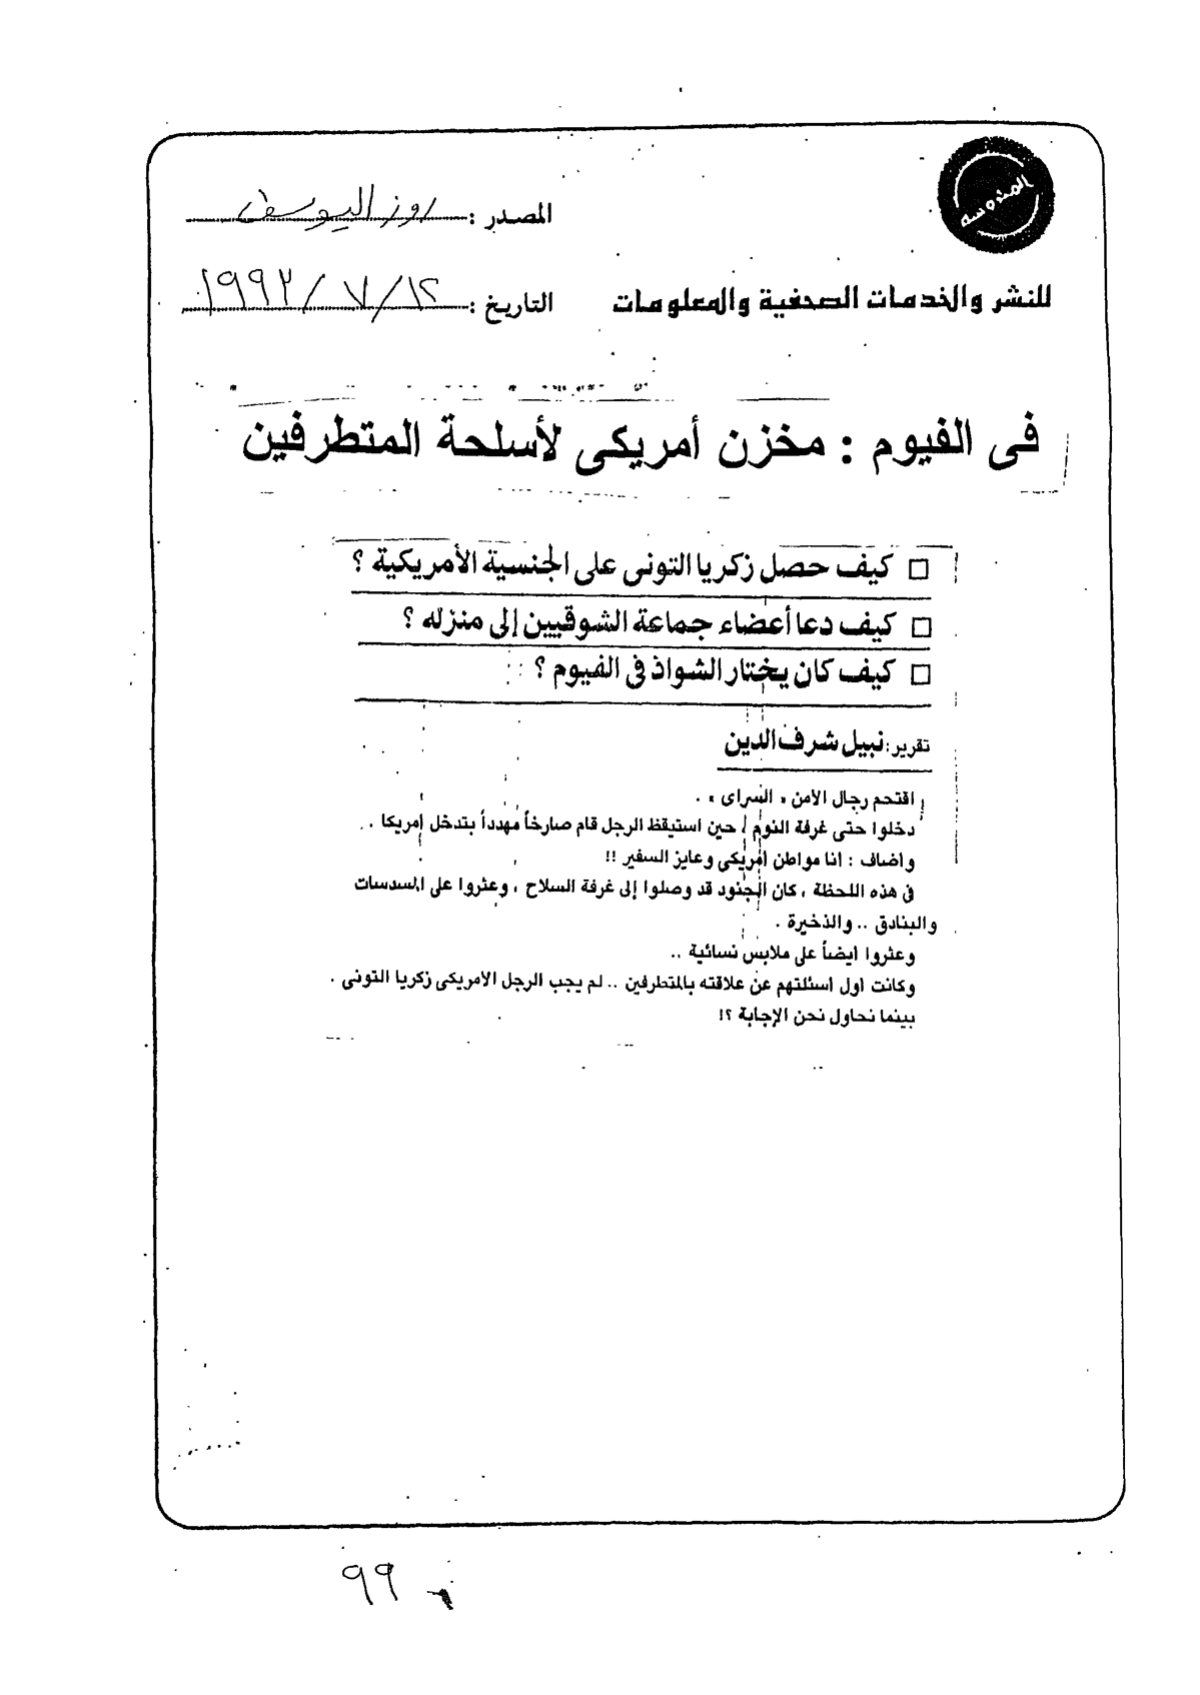 المحروسه
المصدر : روز اليوسف
للنشر والخدمات الصحفية والمعلومات
التاريخ : ١٩٩٢/٧/١٢
فى الفيوم : مخزن أمريكى لأسلحة المتطرفين
□ كيف حصل زكريا التونى على الجنسية الأمريكية ؟
□ كيف دعا أعضاء جماعة الشوقيين إلى منزله ؟
□ كيف كان يختار الشواذ فى الفيوم ؟
تقرير : نبيل شرف الدين
اقتحم رجال الامن « السراى » .
دخلوا حتى غرفة النوم ، حين استيقظ الرجل قام صارخاً مهدداً بتدخل امريكا ..
واضاف : انا مواطن امريكى وعايز السفير !!
فى هذه اللحظة ، كان الجنود قد وصلوا إلى غرفة السلاح ، وعثروا على المسدسات
والبنادق .. والذخيرة .
وعثروا ايضاً على ملابس نسائية ..
وكانت اول اسئلتهم عن علاقته بالمتطرفين .. لم يجب الرجل الامريكى زكريا التونى .
بينما نحاول نحن الإجابة ؟!
٩٩